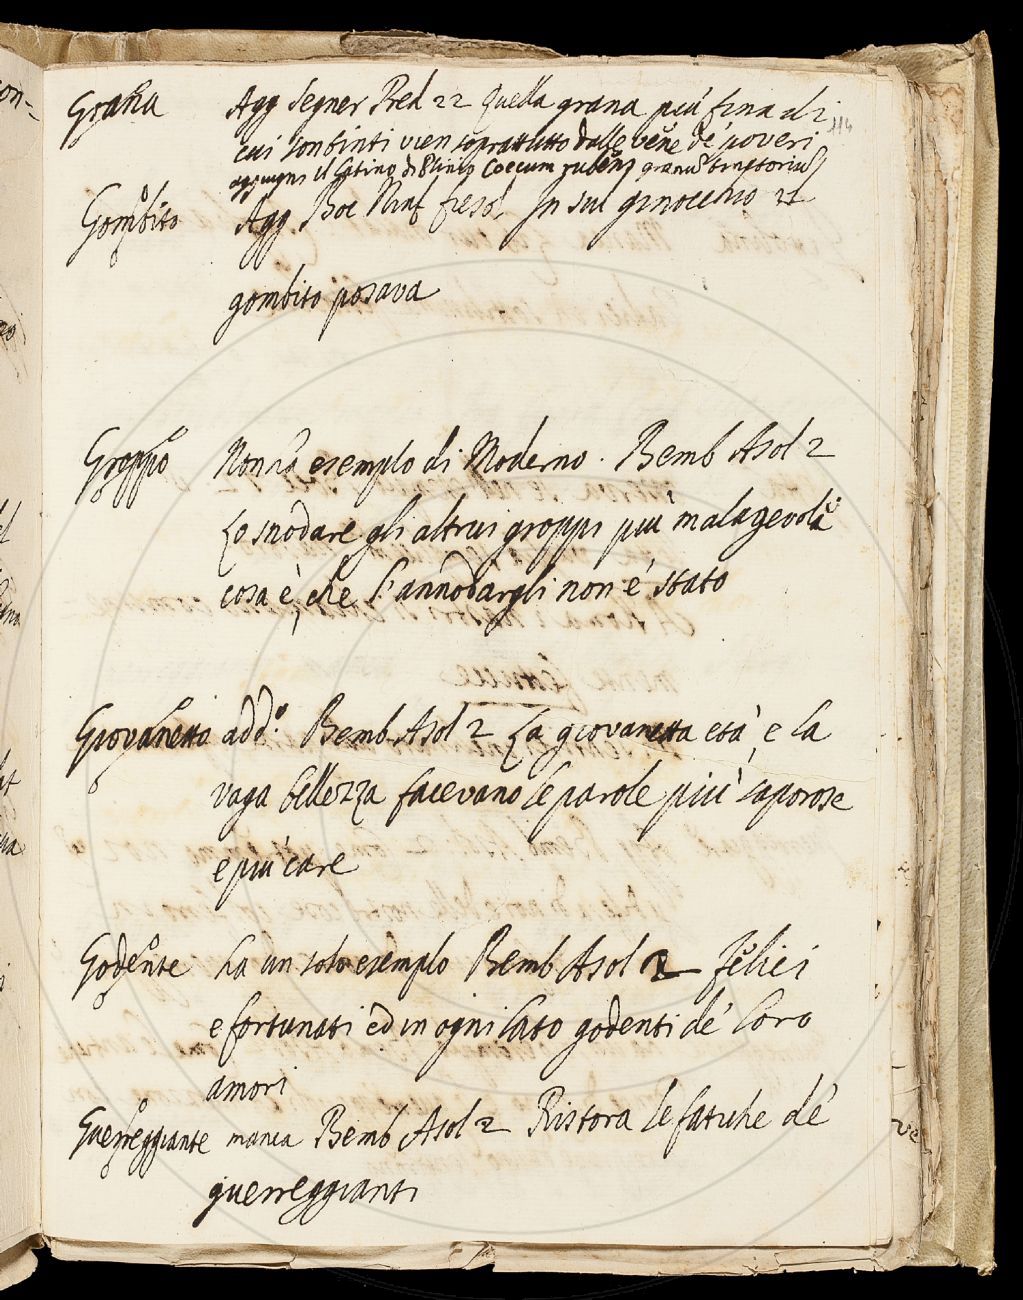 Grana Agg Segner Pred 22 Quella grana più fina di
114
cui son tinti vien soprattutto dalle vene de' poveri
aggiugni il Latino di Plinio Coccum rubens granum tinctorium
Gombito Agg Boc Ninf fiesol In sul ginocchio il
gombito posava
Groppo Non ha esemplo di Moderno. Bemb Asol 2
Lo snodare gli altrui groppi più malagevole
cosa è, che l'annodargli non è stato
Giovanetto add.o Bemb Asol 2 La giovanetta età, e la
vaga bellezza facevano le parole più saporose
e più care
Godente ha un solo esemplo Bemb Asol 2 felici
e fortunati ed in ogni lato godenti de' loro
amori
Guerreggiante manca Bemb Asol 2 Ristora le fatiche de'
guerreggianti